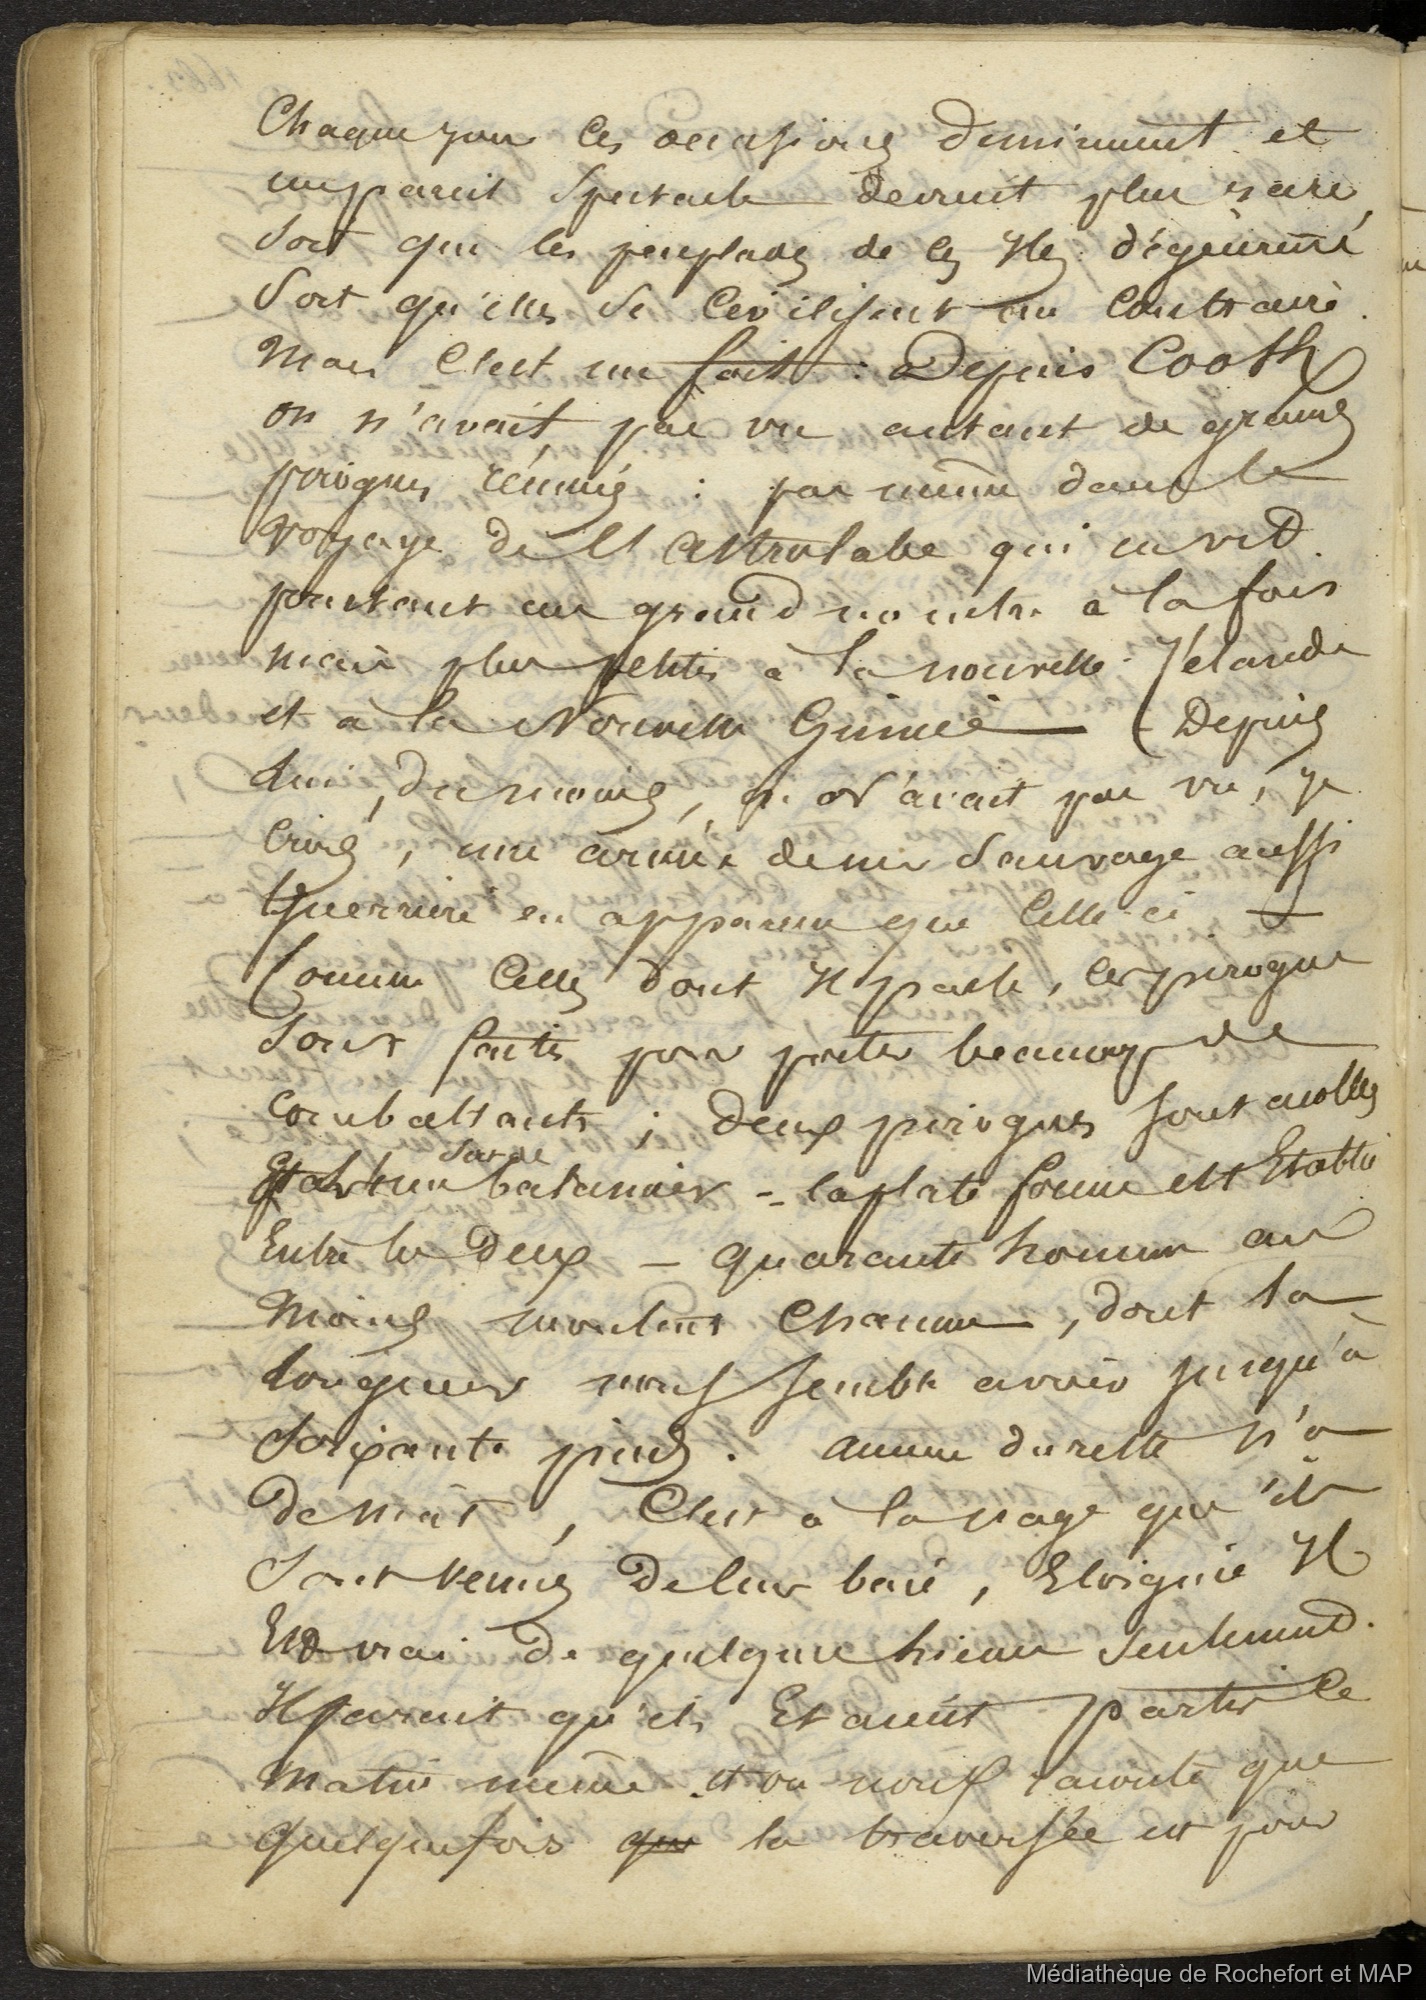 Chaque jour les occasions diminuent et
un pareil spectacle devient plus rare,
soit que les peuplades de ces Iles dégénèrent
soit qu'elles se civilisent au contraire.
Mais c'est un fait : Depuis Cook
on n'avait pas vu autant de grandes
pirogues réunies : pas même dans le
voyage de l'Astrolabe qui en vit
pourtant un grand nombre à la fois
mais plus petites à la nouvelle Zelande
et à la Nouvelle Guinée — Depuis
lui, du moins, on n'avait pas vu, je
crois, une armée de sauvage aussi
guerrière en apparence que celle-ci —
Comme celles dont il parle, les pirogues
sont faites pour porter beaucoup de
combattants ; deux pirogues sont accolées
sorte de
par un balancier - la plate forme est Etablie
Entre les Deux — quarante hommes au
Moins montent chacune, dont la
longueur nous semble avoir jusqu'à
soixante pieds. aucune du reste n'a
de mât, c'est à la pagaye qu'ils
sont venus de leur baie, Eloignée il
Est vrai de quelques lieues seulement.
Il parait qu'ils Etaient partis le
matin même et on nous raconte que
quelquefois que la traversée est pour
Médiathèque de Rochefort et MAP